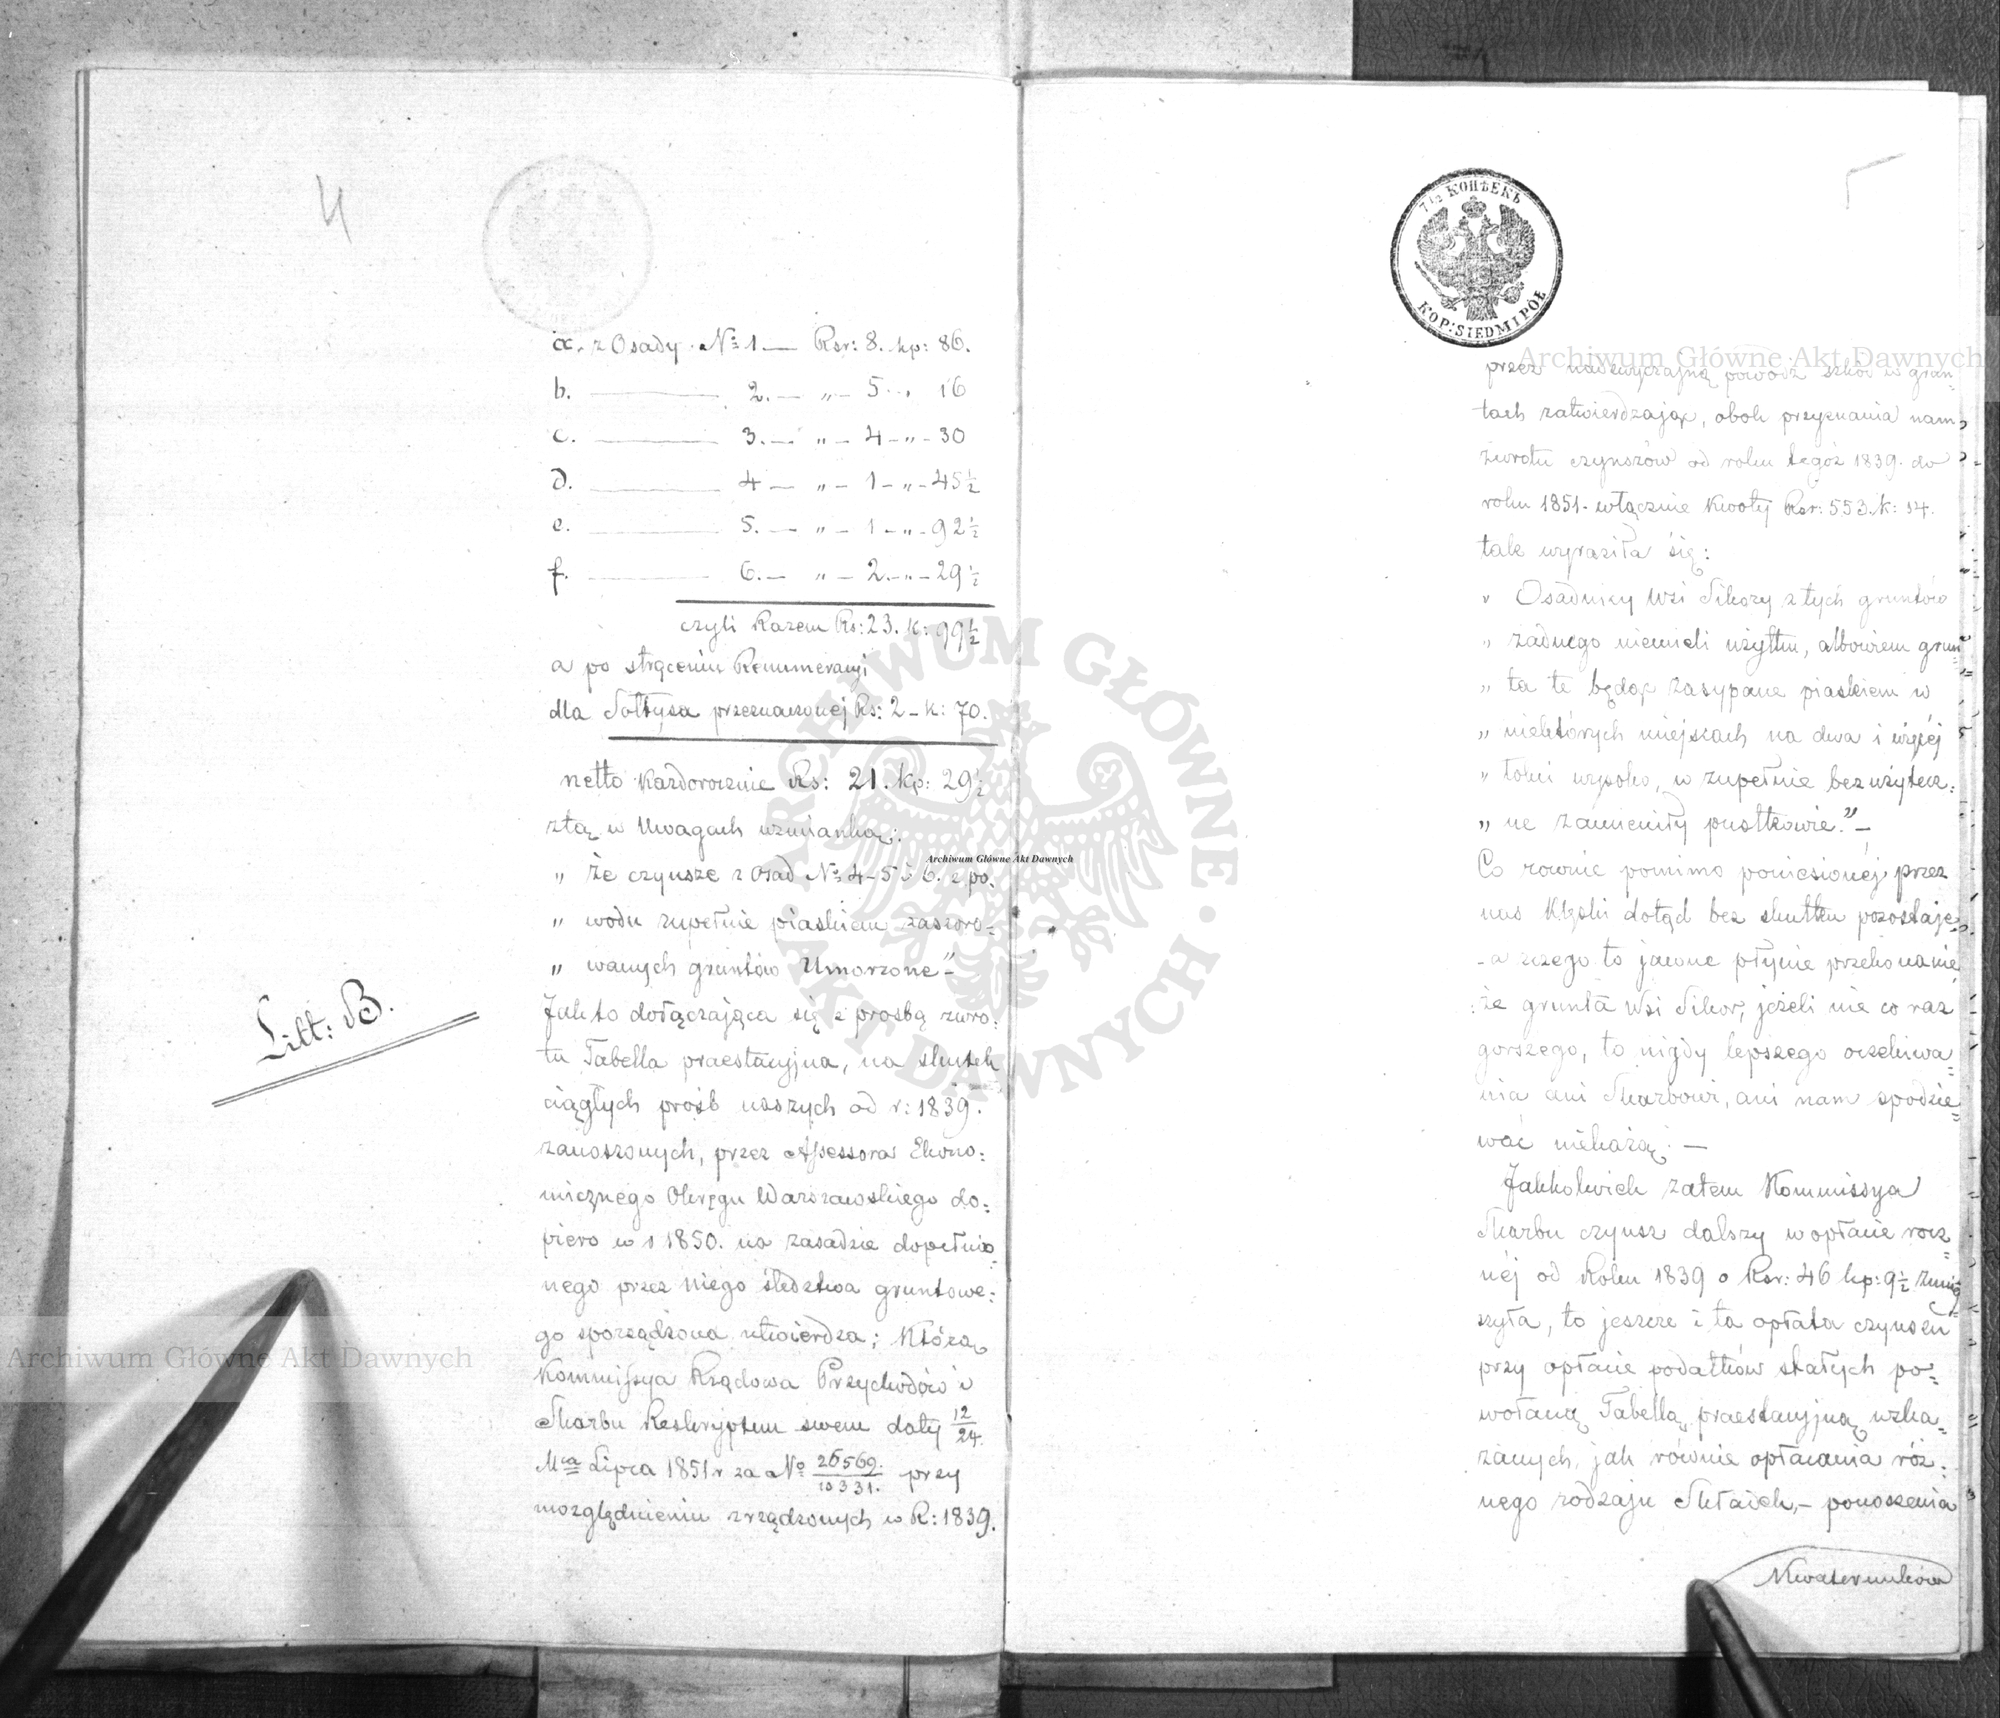 4
a. z Osady No 1 — Rsr: 8. kp: 86.
b. ——— 2. — „ — 5 „ 16
c. ——— 3. — „ — 4 — „ — 30
d. ——— 4 — „ — 1 — „ — 45½
e. ——— 5. — „ — 1 — „ — 92½
f. ——— 6. — „ — 2. — „ — 29½
czyli Razem Rs: 23. k: 99½
a po strąceniu Remuneracyi
dla Sołtysa przeznaczonej Rs: 2 — k: 70.
netto Każdorocznie Rs: 21. kp: 29½
z tą w Uwagach wzmianką:
„ że czynsze z Osad No 4 – 5 i 6. z po„
„ wodu zupełnie piaskiem zaszoro=
„ wanych gruntów Umorzone” —
Litt: B.
Jak to dołączająca się z prośbą zwro:
tu Tabella praestacyjna, na skutek
ciągłych prośb naszych od r: 1839.
zanoszonych, przez Assessora Ekono:
micznego Okręgu Warszawskiego do=
piero w r 1850. na zasadzie dopełnio
nego przez niego śledztwa gruntowe:
go sporządzona utwierdza; Którą
Kommissya Rządowa Przychodów i
Skarbu Reskryptem swem daty 12/24.
Mca Lipca 1851 r za No 26569./10331. przy
uwzględnieniu zrządzonych w R: 1839.
5
7½ КОПѢЕКЪ
KOP: SIEDM I PÓŁ
przez nadzwyczajną powódź szkód w grun=
tach zatwierdzając, obok przyznania nam
zwrotu czynszów od roku tegóż 1839. do
roku 1851. włącznie Kwoty Rsr: 553. k: 14.
tak wyraziła się:
„ Osadnicy Wsi Sikory z tych gruntów
„ żadnego niemieli użytku, albowiem grun
„ ta te będąc zasypane piaskiem w
„ niektórych miejscach na dwa i więcéj
„ łokci wysoko, w zupełnie bezużytecz:
„ ne zamieniły pustkowie.” —
Co równie pomimo poniesionéj przez
nas Klęski dotąd bez skutku pozostaje,
— a z czego to jawne płynie przekonanie
że grunta Wsi Sikor, jeżeli nie co raz
gorszego, to nigdy lepszego oczekiwa=
nia ani Skarbowi, ani nam spodzie=
wać niekażą. —
Jakkolwiek zatem Kommissya
Skarbu czynsz dalszy w opłacie rocz=
néj od Roku 1839 o Rsr: 46 kp: 9½ zmniej
szyła, to jeszcze i ta opłata czynszu
przy opłacie podatków stałych po=
wołaną Tabellą praestacyjną wzka=
zanych, jak równie opłacania róż:
nego rodzaju Składek, — ponoszenia
Kwaterunków
Archiwum Główne Akt Dawnych
Archiwum Główne Akt Dawnych
Archiwum Główne Akt Dawnych
ARCHIWUM GŁÓWNE · AKT DAWNYCH ·